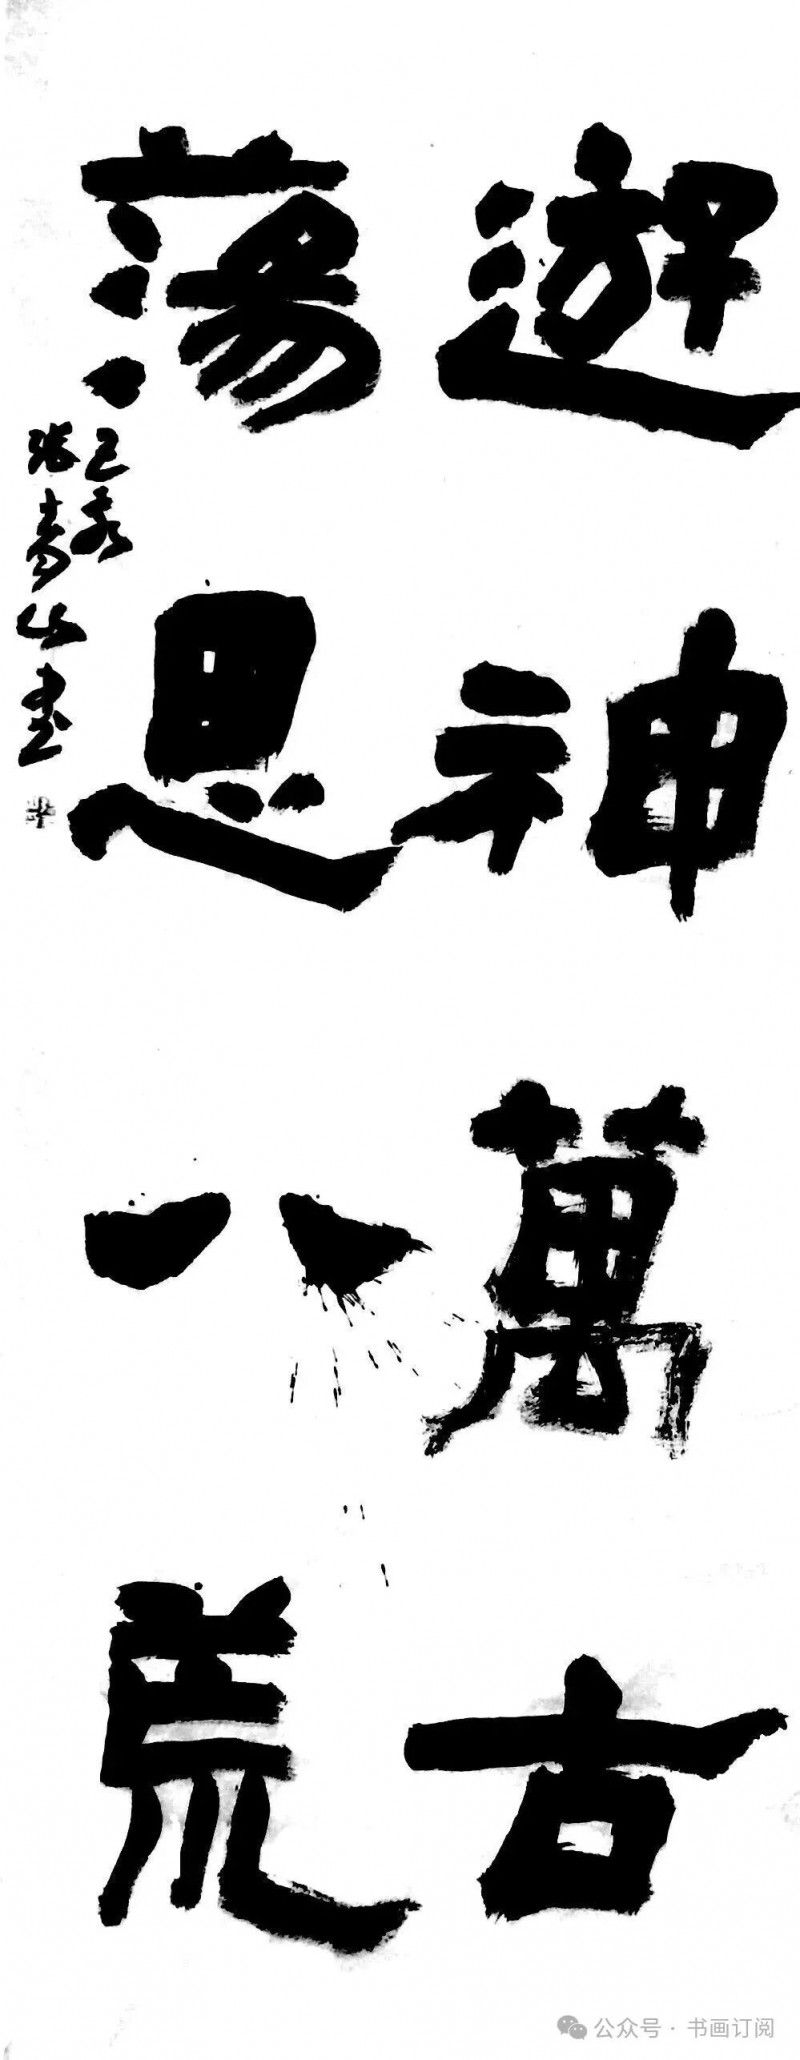 遊神萬古
蕩思八荒
乙
張青山書
公众号 · 书画订阅